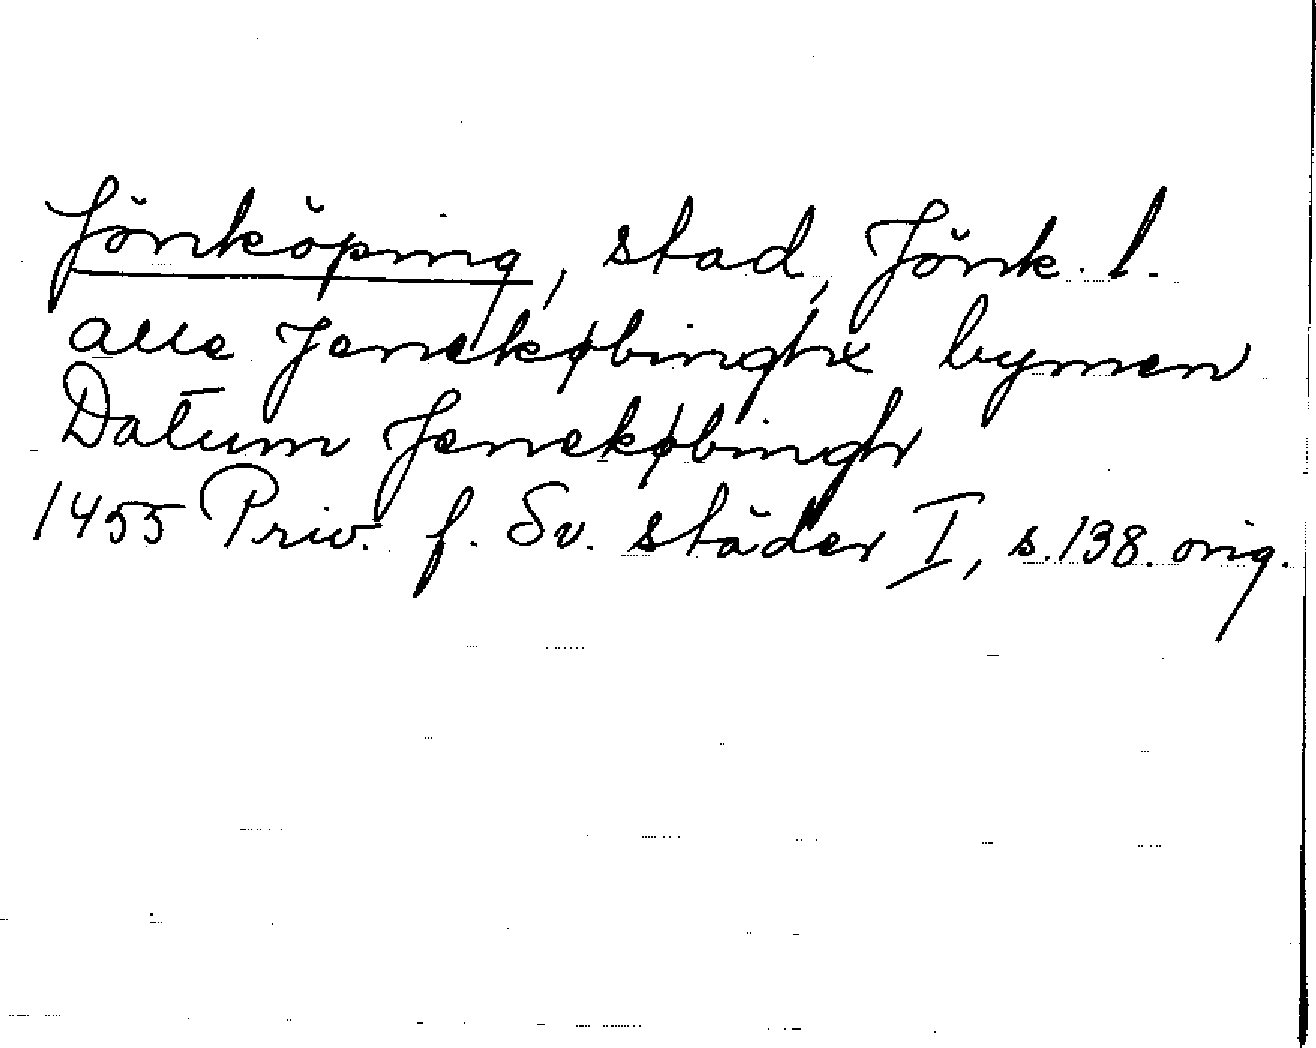 Jönköping, stad, Jönk. l.
alle Jenekøbinghx bymen
Datum Jenekøbingh
1455 Priv. f. Sv. städer I, s. 138. orig.